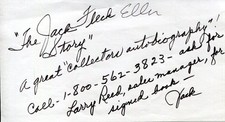 "The Jack Fleck Story"
A great "collectors autobiography"!
Call - 1-800-562-3823 - ask for
Larry Reed, sales manager, for
signed book -
Jack